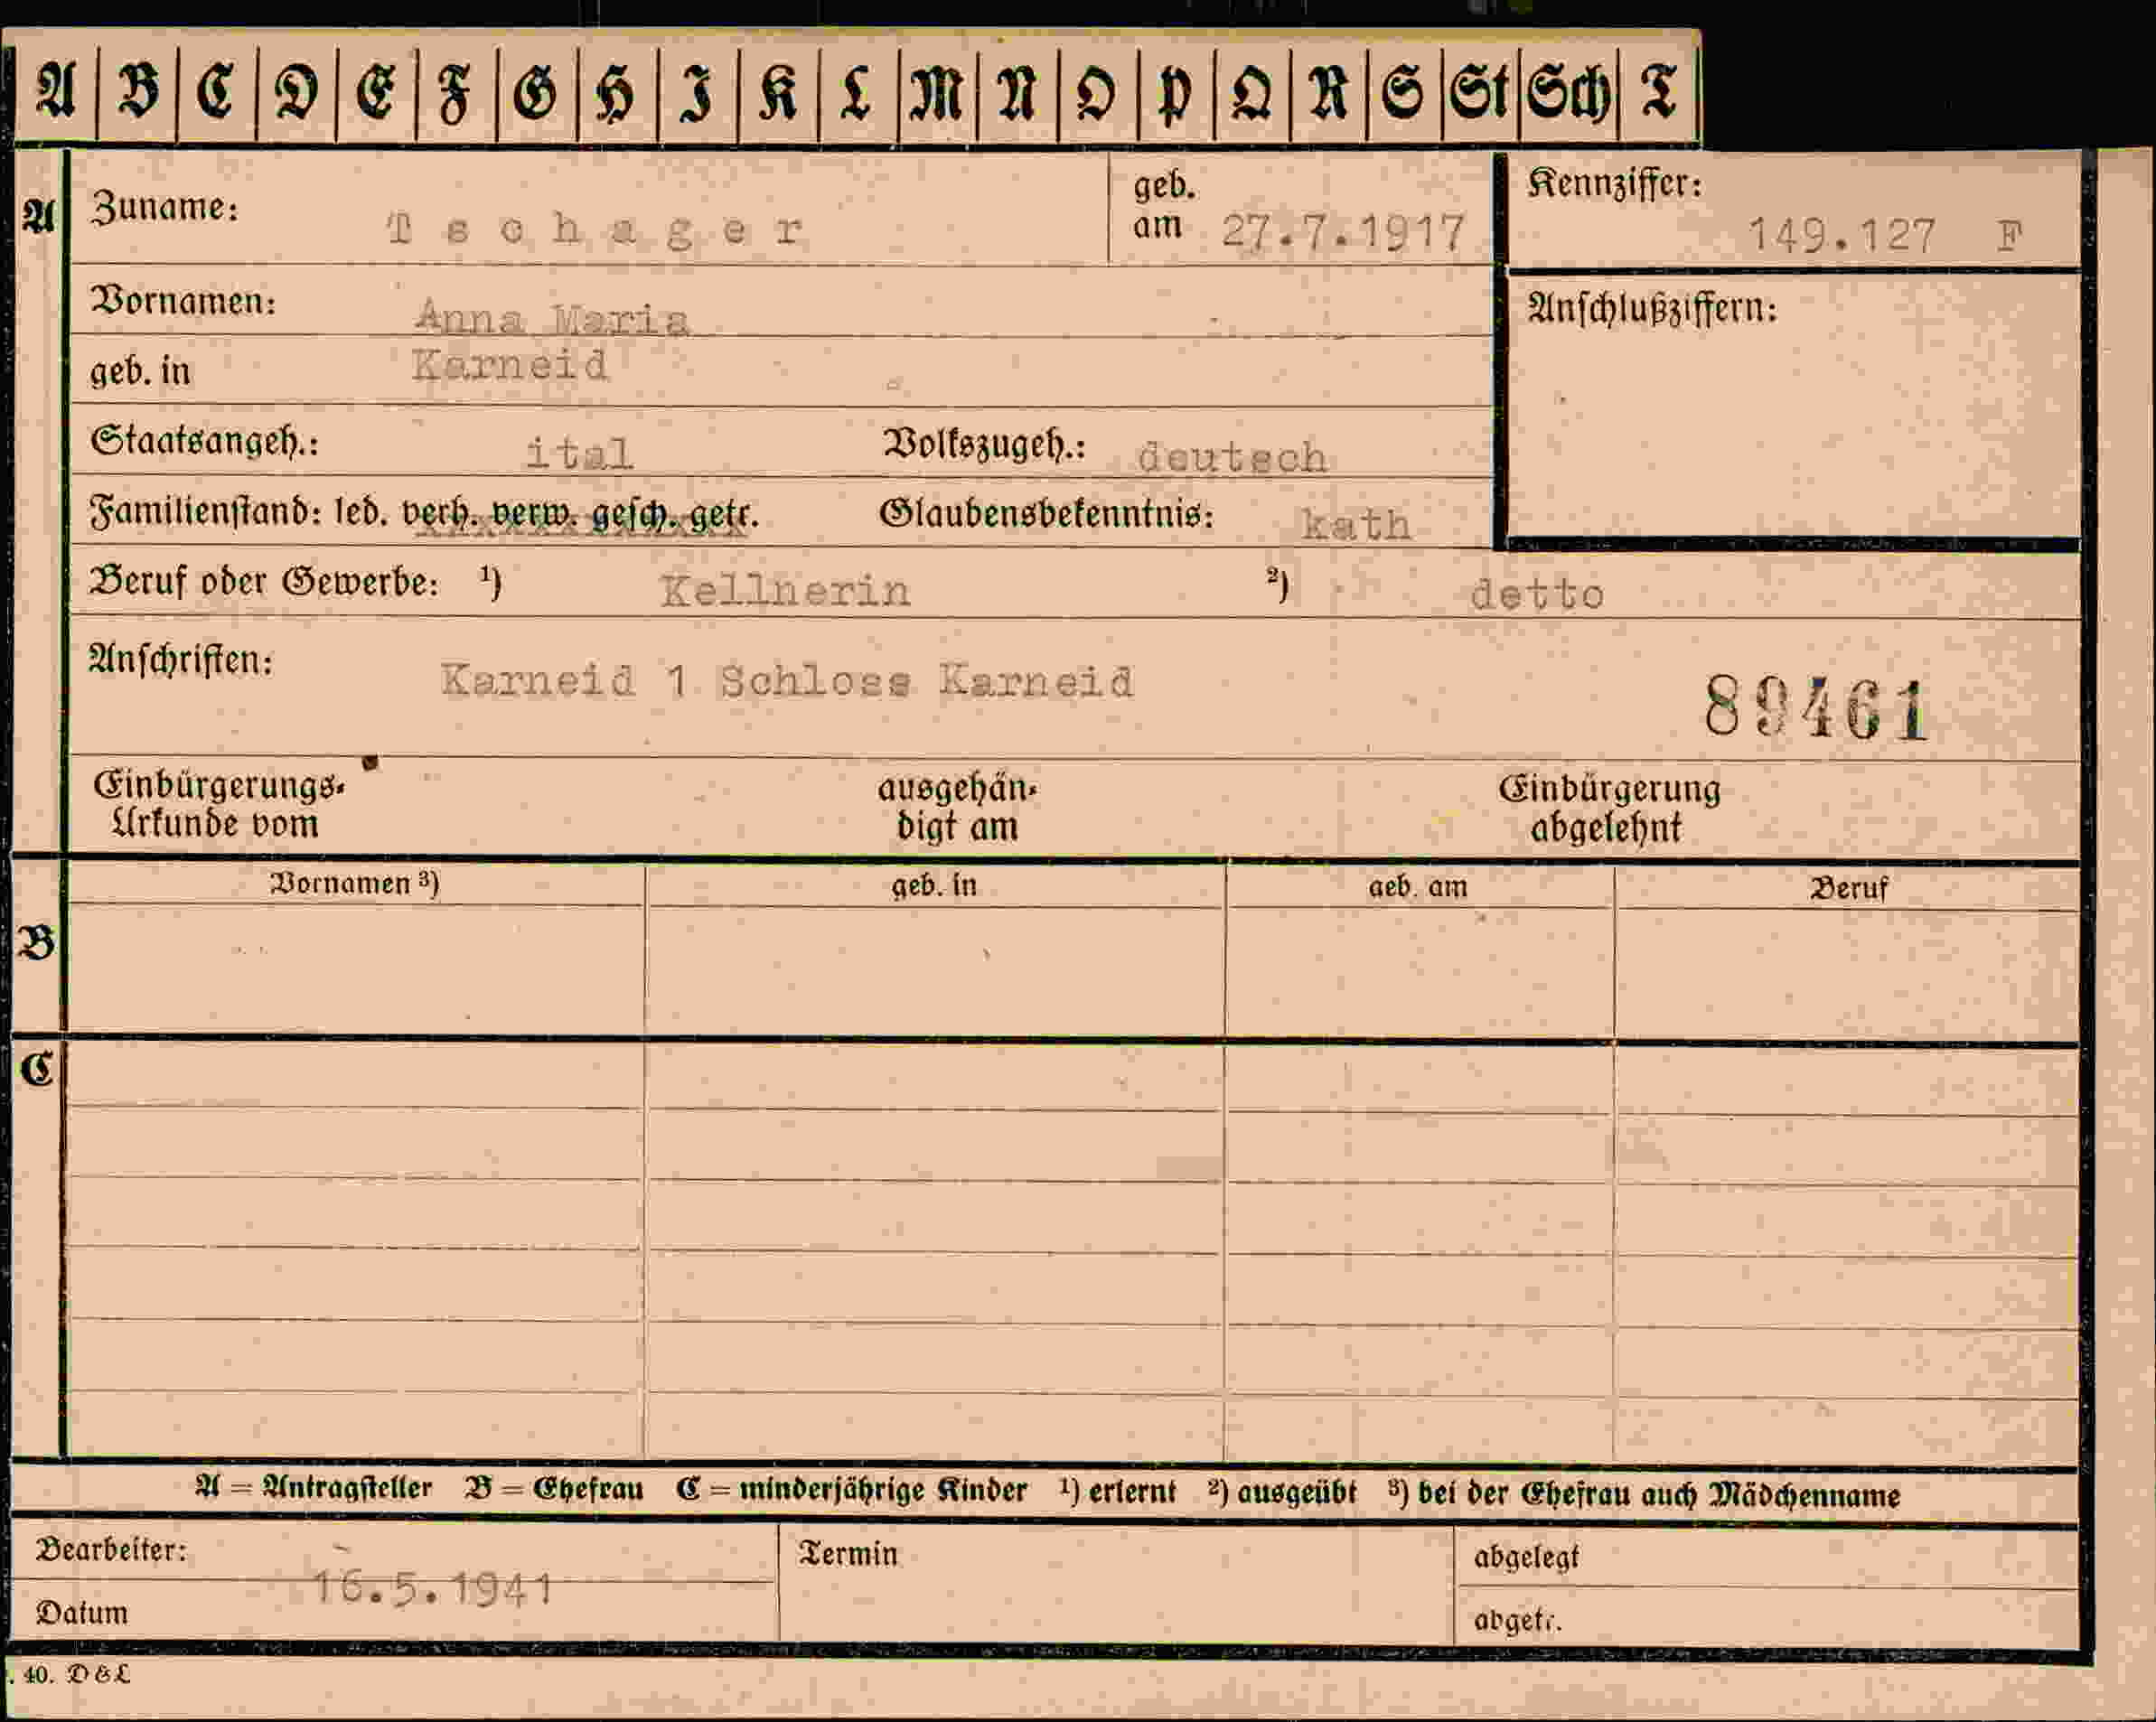 A B C D E F G H I K L M N O P Q R S St Sch T
A Zuname: Tschager geb. am 27.7.1917 Kennziffer: 149.127 F
Vornamen: Anna Maria Anschlußziffern:
geb. in Karneid
Staatsangeh.: ital Volkszugeh.: deutsch
Familienstand: led. verh. verw. gesch. getr. Glaubensbekenntnis: kath
Beruf oder Gewerbe: ¹) Kellnerin ²) detto
Anschriften: Karneid 1 Schloss Karneid 89461
Einbürgerungs- ausgehän- Einbürgerung
Urkunde vom digt am abgelehnt
Vornamen ³) geb. in geb. am Beruf
B
C
A = Antragsteller B = Ehefrau C = minderjährige Kinder ¹) erlernt ²) ausgeübt ³) bei der Ehefrau auch Mädchenname
Bearbeiter: Termin abgelegt
16.5.1941
Datum abgetr.
. 40. D&L